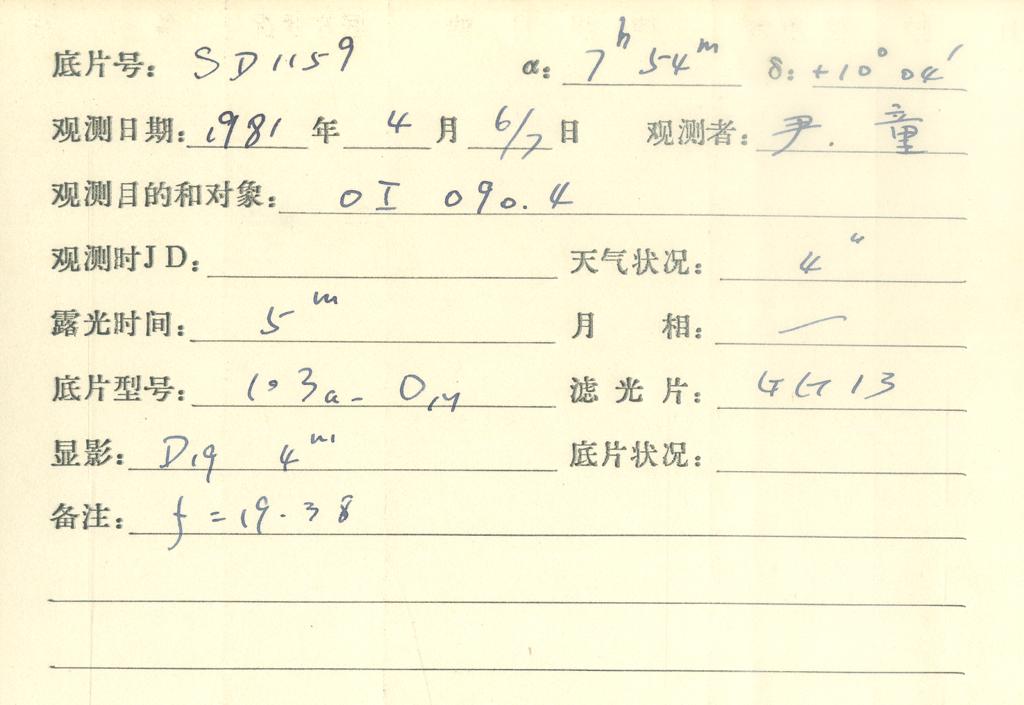 底片号: SD1159 α: 7ʰ 54ᵐ δ: +10° 04′
观测日期: 1981 年 4 月 6/7 日 观测者: 尹. 童
观测目的和对象: OI 090.4
观测时JD: 天气状况: 4″
露光时间: 5ᵐ 月 相: —
底片型号: 103a-O 滤光片: GG13
显影: D19 4ᵐ 底片状况:
备注: f = 19.38